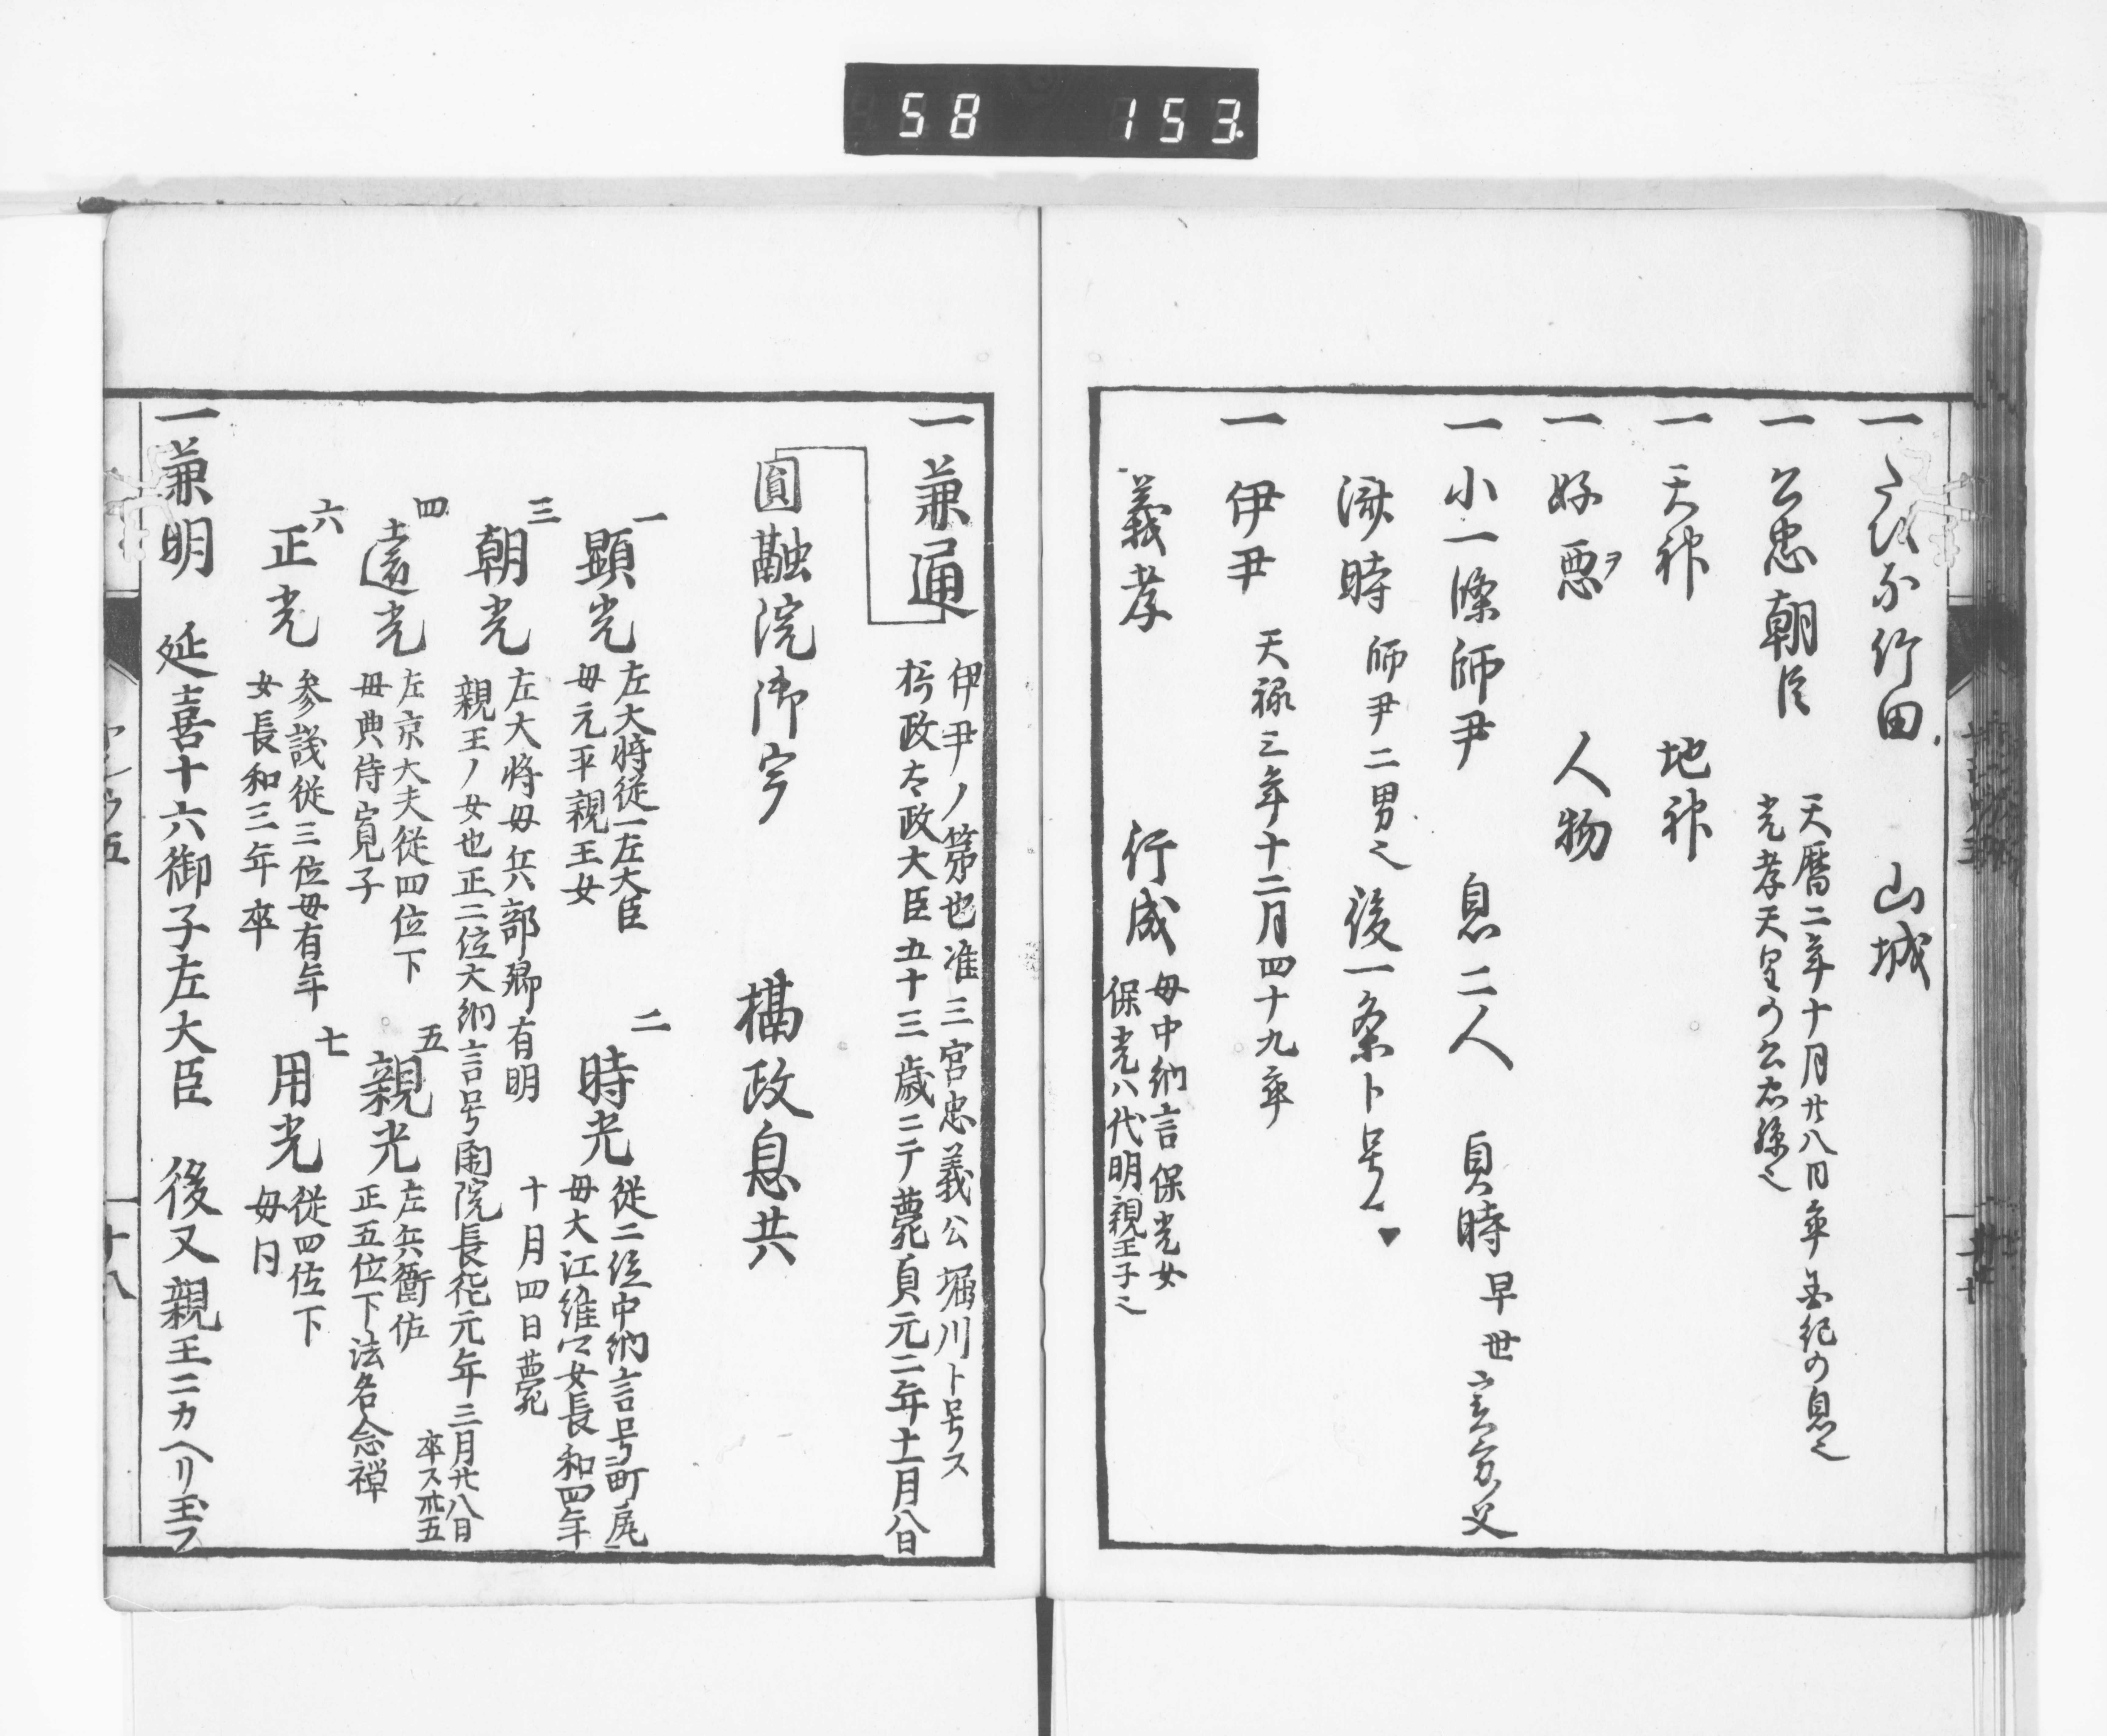 58 153
一 竹田 山城
一 公忠朝臣 天暦二年十月廿八日卒 国紀の息也
光孝天皇の
一 天神 地神
一 好悪ヲ 人物
一 小一條師尹 息二人 貞時 早世 実方父
済時 師尹二男也 後一条ト号ス
一 伊尹 天禄三年十二月四十九卒
義孝 行成 母中納言保光女
保光ハ代明親王子也
一 兼通 伊尹ノ第也准三宮忠義公堀川ト号ス
摂政太政大臣五十三歳ニテ薨貞元二年十一月八日
圓融院御宇 摂政息共
一 顕光 左大将従一左大臣
母元平親王女
二 時光 従二位中納言号町尻
母大江維女長和四年
十月四日薨
三 朝光 左大将母兵部卿有明
親王ノ女也正二位大納言号閑院長徳元年三月廿八日
卒ス卅五
四 遠光 左京大夫従四位下
母典侍寛子
五 親光 左兵衛佐
正五位下法名念禅
六 正光 参議従三位母有年
女長和三年卒
七 用光 従四位下
母同
一 兼明 延喜十六御子左大臣 後又親王ニカヘリ玉フ
十八